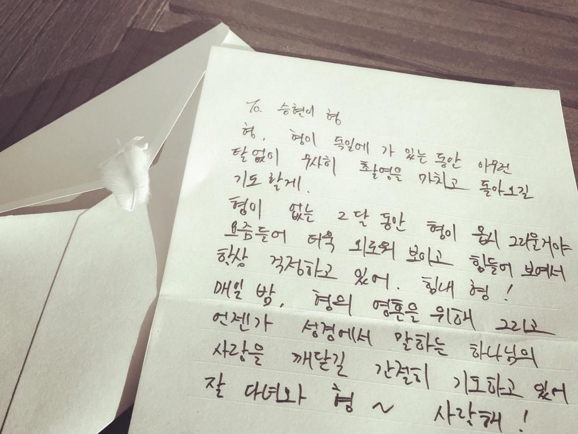 To. 승현이 형
형, 형이 독일에 가 있는 동안 아무런
탈 없이 무사히 촬영을 마치고 돌아오길
기도 할게.
형이 없는 2달 동안 형이 몹시 그리울거야
요즘들어 더욱 외로워 보이고 힘들어 보여서
항상 걱정하고 있어. 힘내 형!
매일 밤, 형의 영혼을 위해 그리고
언젠가 성경에서 말하는 하나님의
사랑을 깨닫길 간절히 기도하고 있어
잘 다녀와 형 ~ 사랑해!